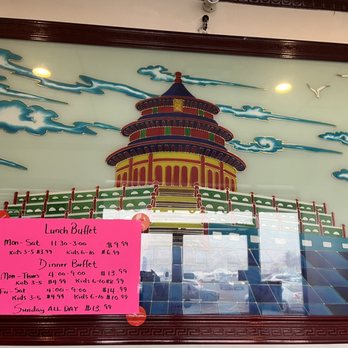 Lunch Buffet
Mon-Sat 11:30-3:00 $9.99
Kids 3-5 $3.99 Kids 6-10 $6.99
Dinner Buffet
Mon-Thurs 4:00-9:00 $13.99
Kids 3-5 $4.99 Kids 6-10 $8.99
Fri-Sat 4:00-9:00 $14.99
Kids 3-5 $4.99 Kids 6-10 $10.99
Sunday ALL DAY $13.99